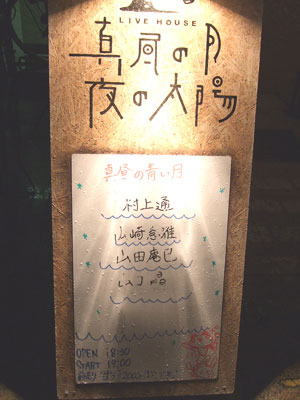 LIVE HOUSE
真昼の月
夜の太陽
真昼の青い月
村上通
山崎怠雅
山田庵巳
OPEN 18:30
START 19:00